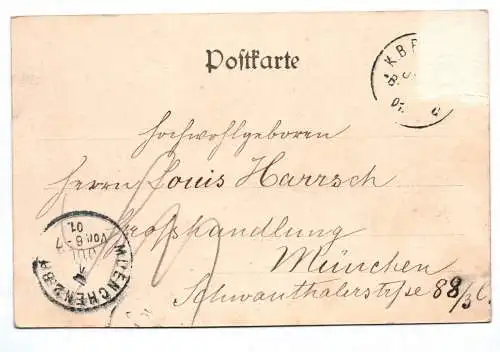 Postkarte
K.B.P.
Hochwohlgeboren
Herrn Louis Harrsch
Grosshandlung
München
Schwanthalerstrsse 88/3
MUENCHEN 2.B.A
Vor. 6-7
01.